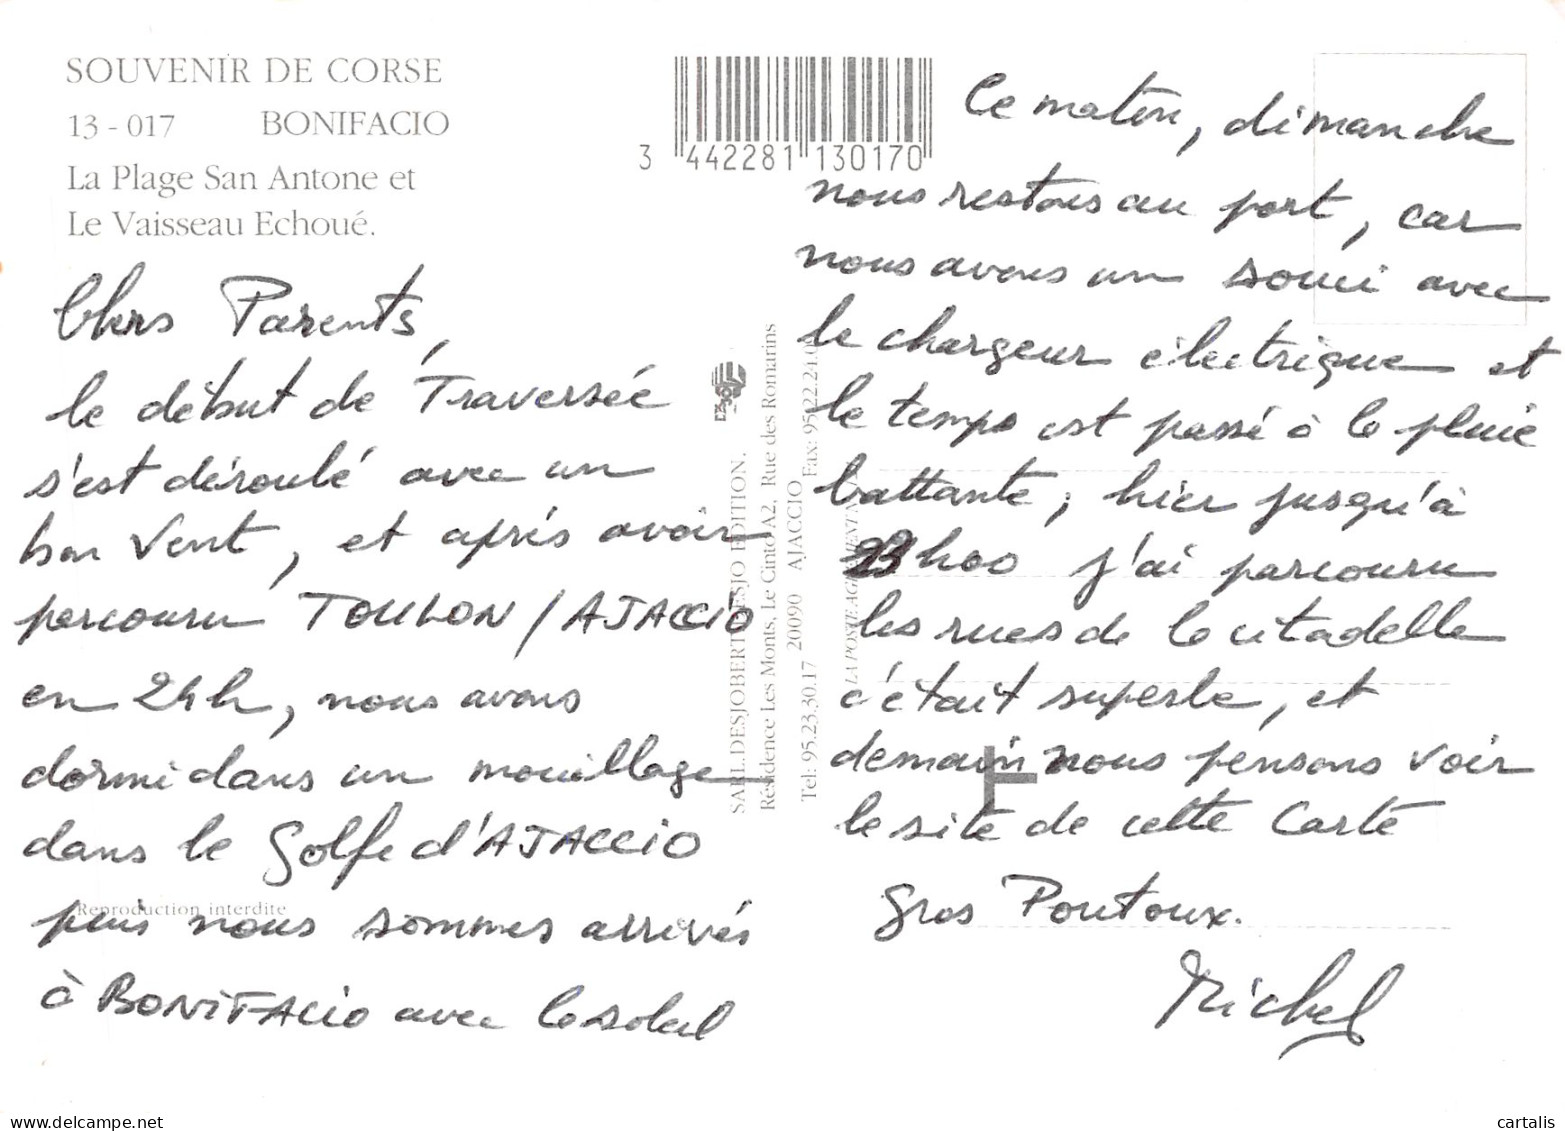 SOUVENIR DE CORSE
13 - 017 BONIFACIO
La Plage San Antone et
Le Vaisseau Echoué.
3 442281 130170
Chers Parents,
le début de Traversée
s'est déroulé avec un
bon Vent, et après avoir
parcouru TOULON / AJACCIO
en 24h, nous avons
dormi dans un mouillage
dans le Golfe d'AJACCIO
puis nous sommes arrivés
à BONIFACIO avec le soleil
Reproduction interdite
SARL.DESJOBERT DESJO EDITION.
Résidence Les Monts, Le Cinto A2, Rue des Romarins
20090 AJACCIO
Tel: 95.23.30.17 Fax: 95.22.24.
LA POSTE AGREMENT N°
Ce matin, dimanche
nous restons au port, car
nous avons un souci avec
le chargeur électrique et
le temps est passé à la pluie
battante, hier jusqu'à
23h00 j'ai parcouru
les rues de la citadelle
c'était superbe, et
demain nous pensons voir
le site de cette Carte
Gros Poutoux.
Michel
cartalis
www.delcampe.net